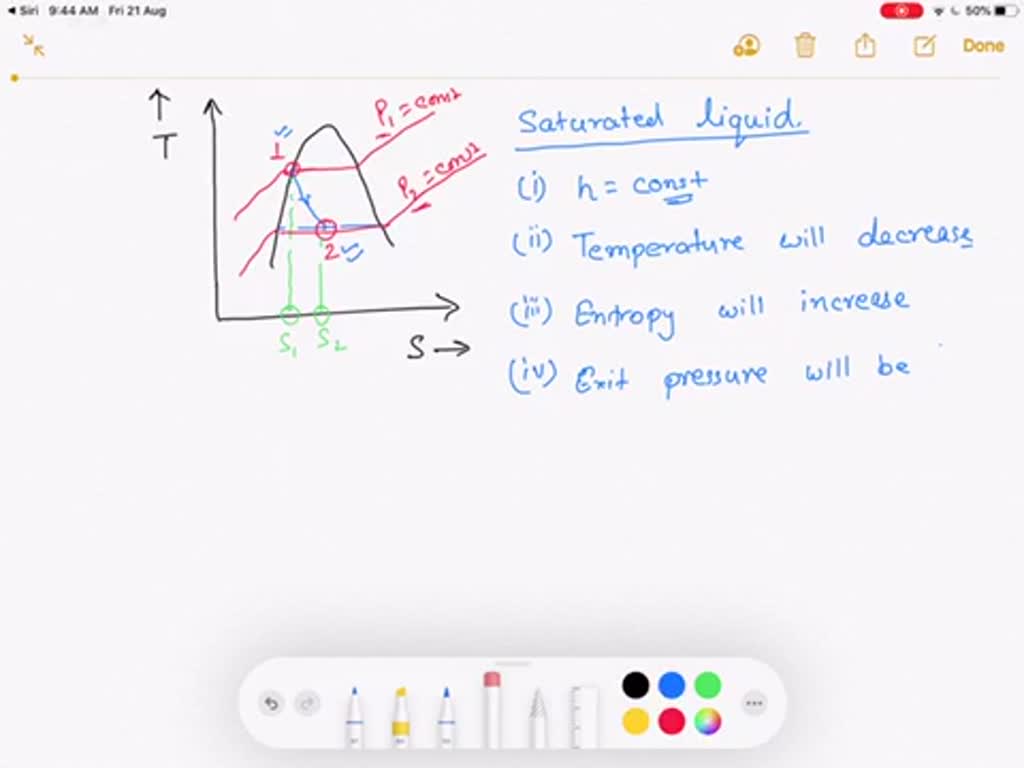 Siri 9:44 AM Fri 21 Aug 50%
Done
T
P₁ = const
1
P₂ = const
2
S₁ S₂
S
Saturated liquid.
(i) h = const
(ii) Temperature will decrease
(iii) Entropy will increase
(iv) Exit pressure will be